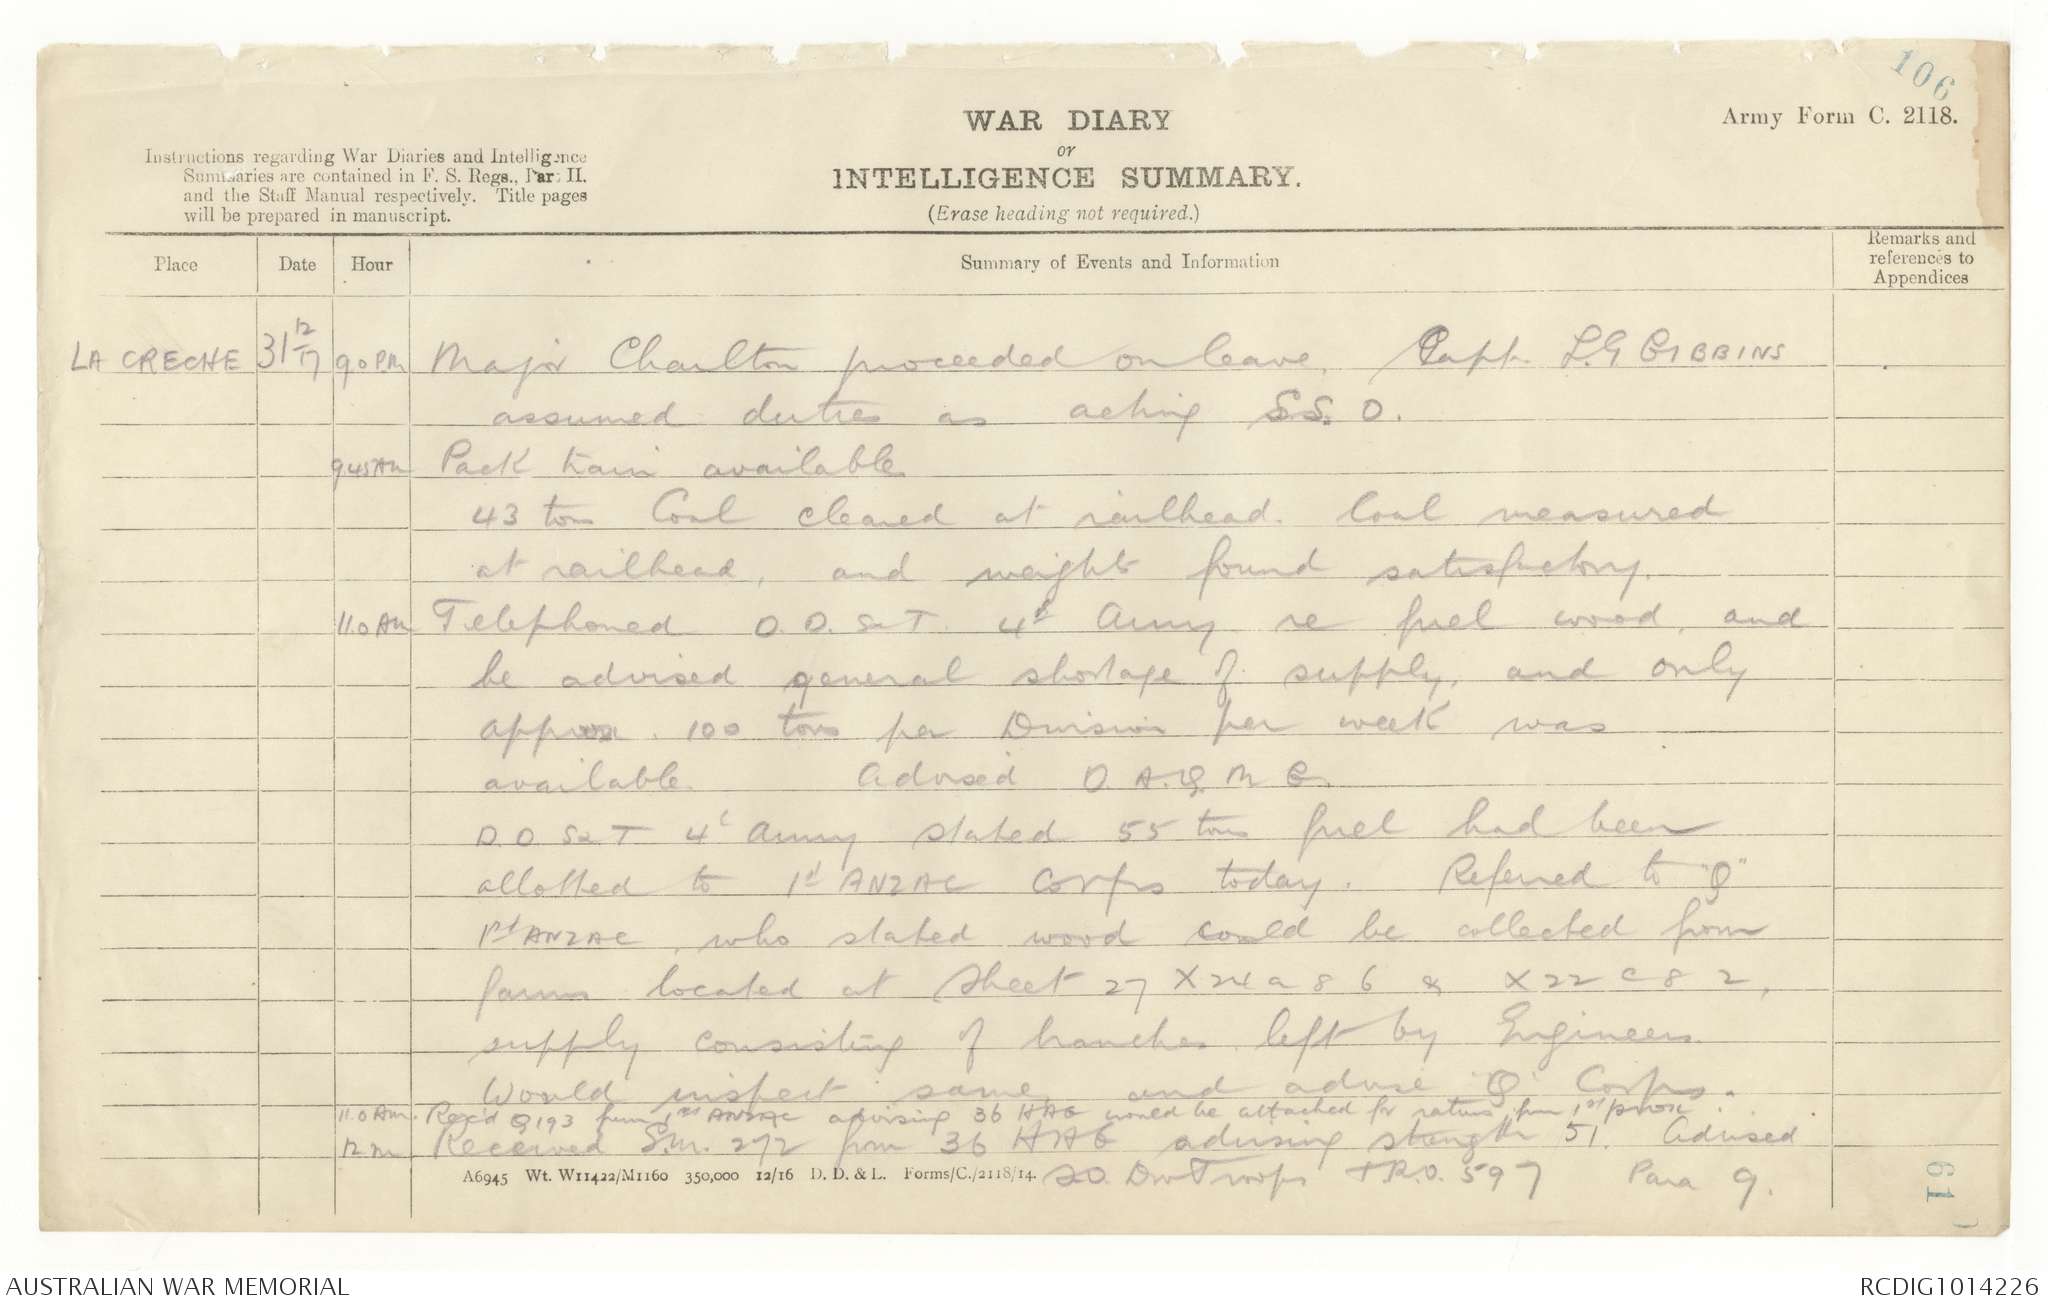 106
Army Form C. 2118.
WAR DIARY
or
INTELLIGENCE SUMMARY.
(Erase heading not required.)
Instructions regarding War Diaries and Intelligence
Summaries are contained in F. S. Regs., Part II.
and the Staff Manual respectively. Title pages
will be prepared in manuscript.
Place Date Hour Summary of Events and Information Remarks and references to Appendices
LA CRECHE 31 12/17 9.0 P.M. Major Charlton proceeded on leave. Capt. L.G GIBBINS
assumed duties as acting S.S.O.
9.45 AM Pack train available
43 tons Coal cleared at railhead. Coal measured
at railhead, and weights found satisfactory.
11.0 AM Telephoned D.D.S&T. 4th Army re fuel wood, and
he advised general shortage of supply, and only
approx. 100 tons per Division per week was
available. Advised D.A.Q.M.G.
D.D.S&T 4th Army stated 55 tons fuel had been
allotted to 1st ANZAC Corps today. Referred to "Q"
1st ANZAC, who stated wood could be collected from
farms located at Sheet 27 X24a 8 6 & X22 C 8 2,
supply consisting of branches left by Engineers.
Would inspect same and advise "Q" Corps.
11.0 Am. Recd Q193 from 1st ANZAC advising 36 HAG would be attached for rations from 1st prox
12 M Received S.M. 272 from 36 HAG advising strength 51. Advised
A6945 Wt. W11422/M1160 350,000 12/16 D. D. & L. Forms/C./2118/14.
SO. Div Troops + R.O. 597 Para 9.
61
AUSTRALIAN WAR MEMORIAL
RCDIG1014226